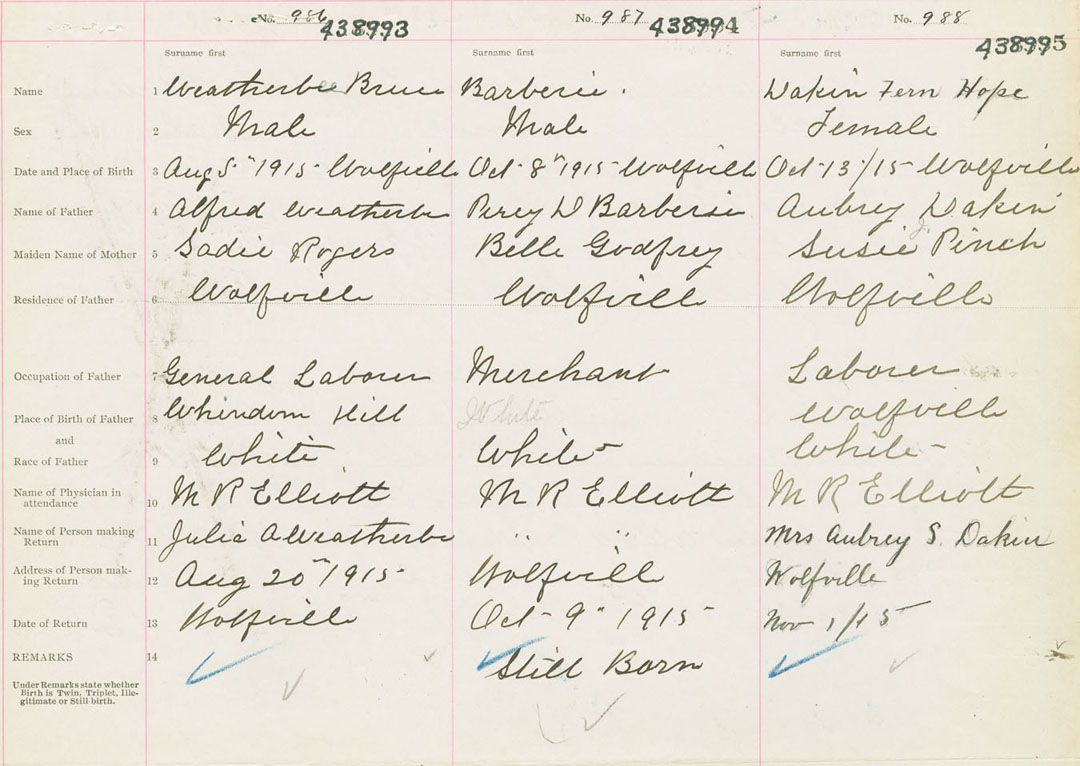 No. 986 438993 No. 987 438994 No. 988 438995
Surname first Surname first Surname first
Name 1 Weatherbee Bruce Barberie. Dakin Fern Hope
Sex 2 Male Male Female
Date and Place of Birth 3 Aug 5" 1915 - Wolfville Oct - 8" 1915 - Wolfville Oct - 13/15 - Wolfville
Name of Father 4 Alfred Weatherbe Percy W Barberie Aubrey Dakin
Maiden Name of Mother 5 Sadie Rogers Belle Godfrey Susie Pinch
Residence of Father 6 Wolfville Wolfville Wolfville
Occupation of Father 7 General Laborer Merchant Laborer
Place of Birth of Father 8 Hill White Wolfville
and
Race of Father 9 White White - White -
Name of Physician in
attendance 10 M R Elliott M R Elliott M R Elliott
Name of Person making
Return 11 Julia A Weatherbe " " Mrs Aubrey S. Dakin
Address of Person mak-
ing Return 12 Aug 20" 1915 - Wolfville Wolfville
Date of Return 13 Wolfville Oct - 9" 1915 - Nov 1/15
REMARKS 14 Still Born
Under Remarks state whether
Birth is Twin, Triplet, Ille-
gitimate or Still-birth.